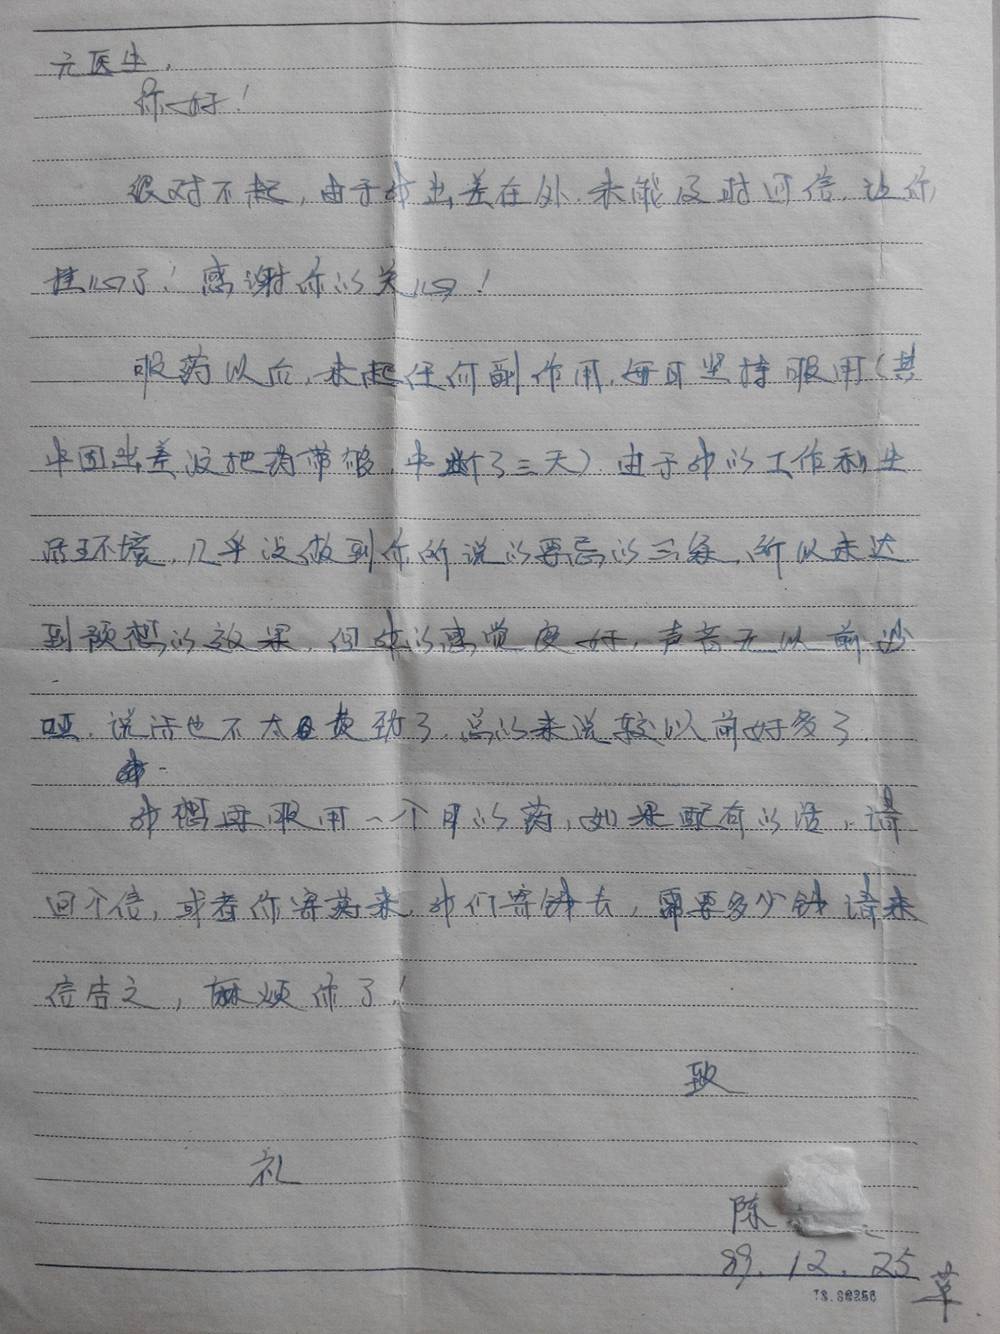 元医生，
你好！
很对不起，由于我出差在外，未能及时回信，让你
挂心了！感谢你的关心！
服药以后，未起任何副作用，每日坚持服用（其
中因出差没把药带够，中断了三天）由于我的工作和生
活环境，几乎没做到你所说的要忌的三条，所以未达
到预想的效果，但我的感觉良好，声音无以前沙
哑，说话也不太费劲了，总的来说较以前好多了
我想再服用一个月的药，如果配有的话，请
回个信，或者你寄药来，我们寄钱去，需要多少钱请来
信告之，麻烦你了！
致
礼
陈
89.12.25
草